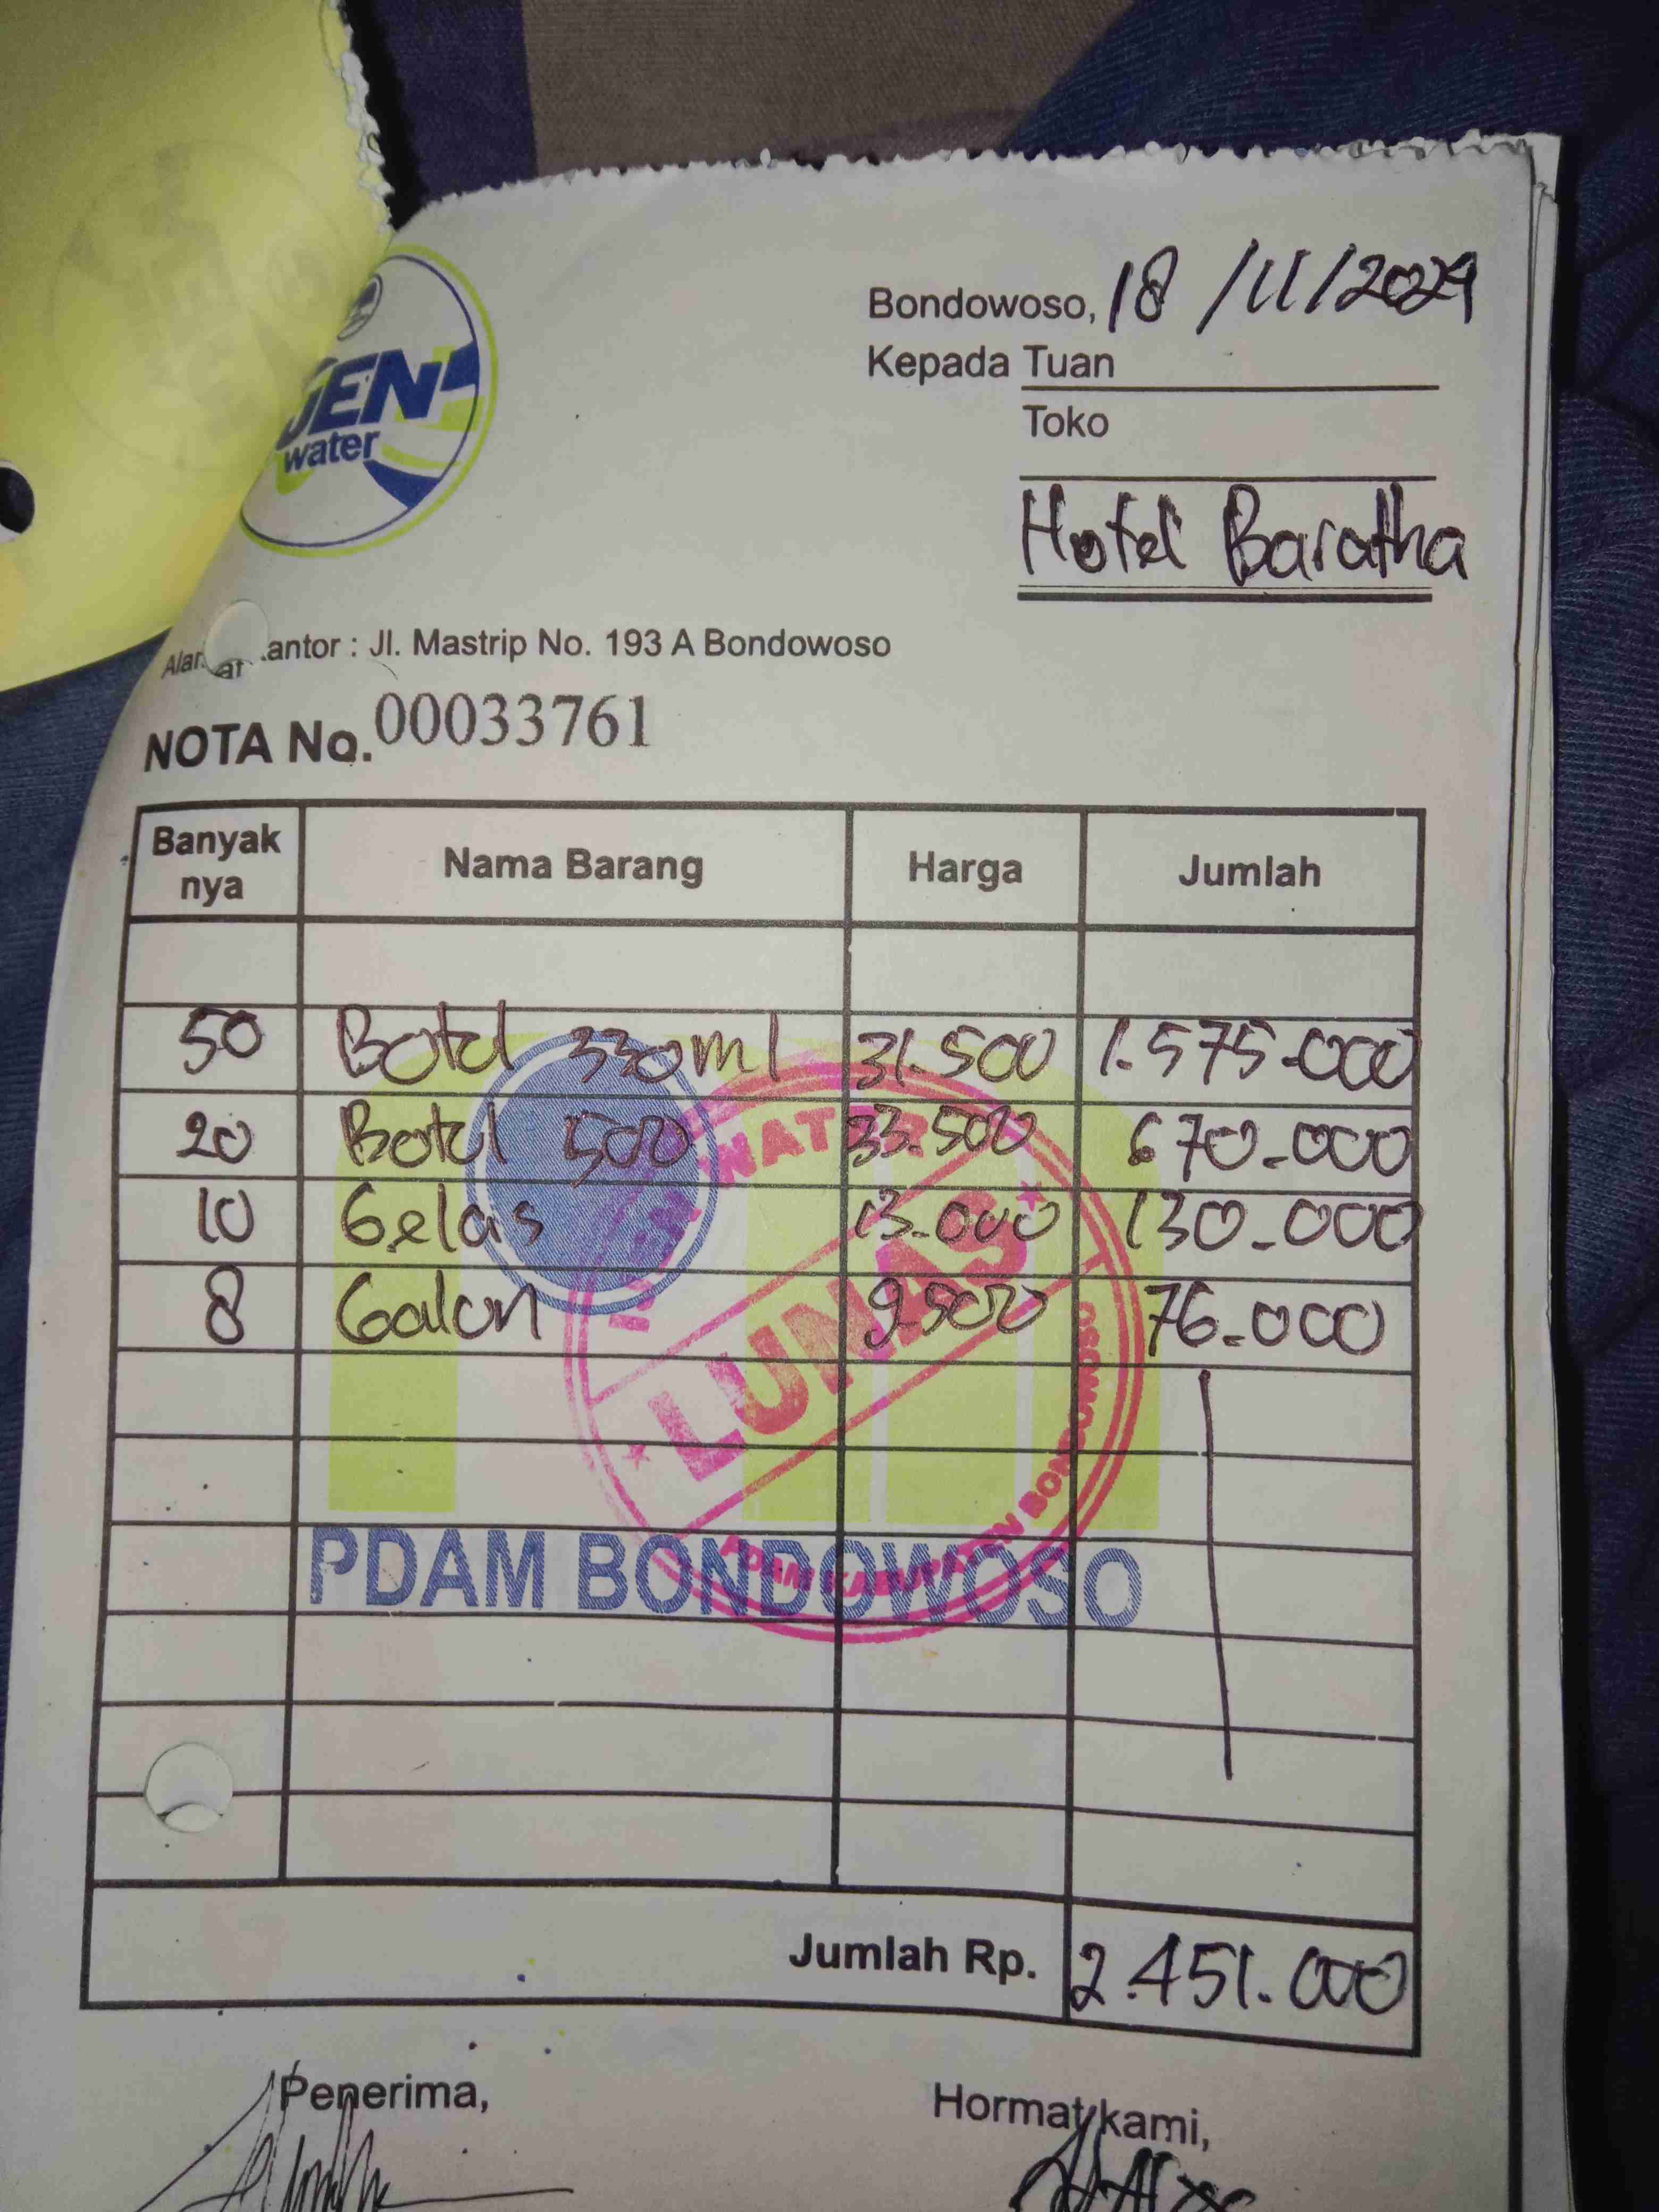 Bondowoso, 18/11/2024
Kepada Tuan
Toko
Hotel Baratha
JEN
water
Kantor : Jl. Mastrip No. 193 A Bondowoso
NOTA No. 00033761
Banyak nya Nama Barang Harga Jumlah
50 Botol 330ml 31.500 1.575.000
20 Botol 500 33.500 670.000
10 Gelas 13.000 130.000
8 Galon 9.500 76.000
WATER
LUNAS
PDAM KABUPATEN BONDOWOSO
PDAM BONDOWOSO
Jumlah Rp. 2.451.000
Penerima, Hormat kami,